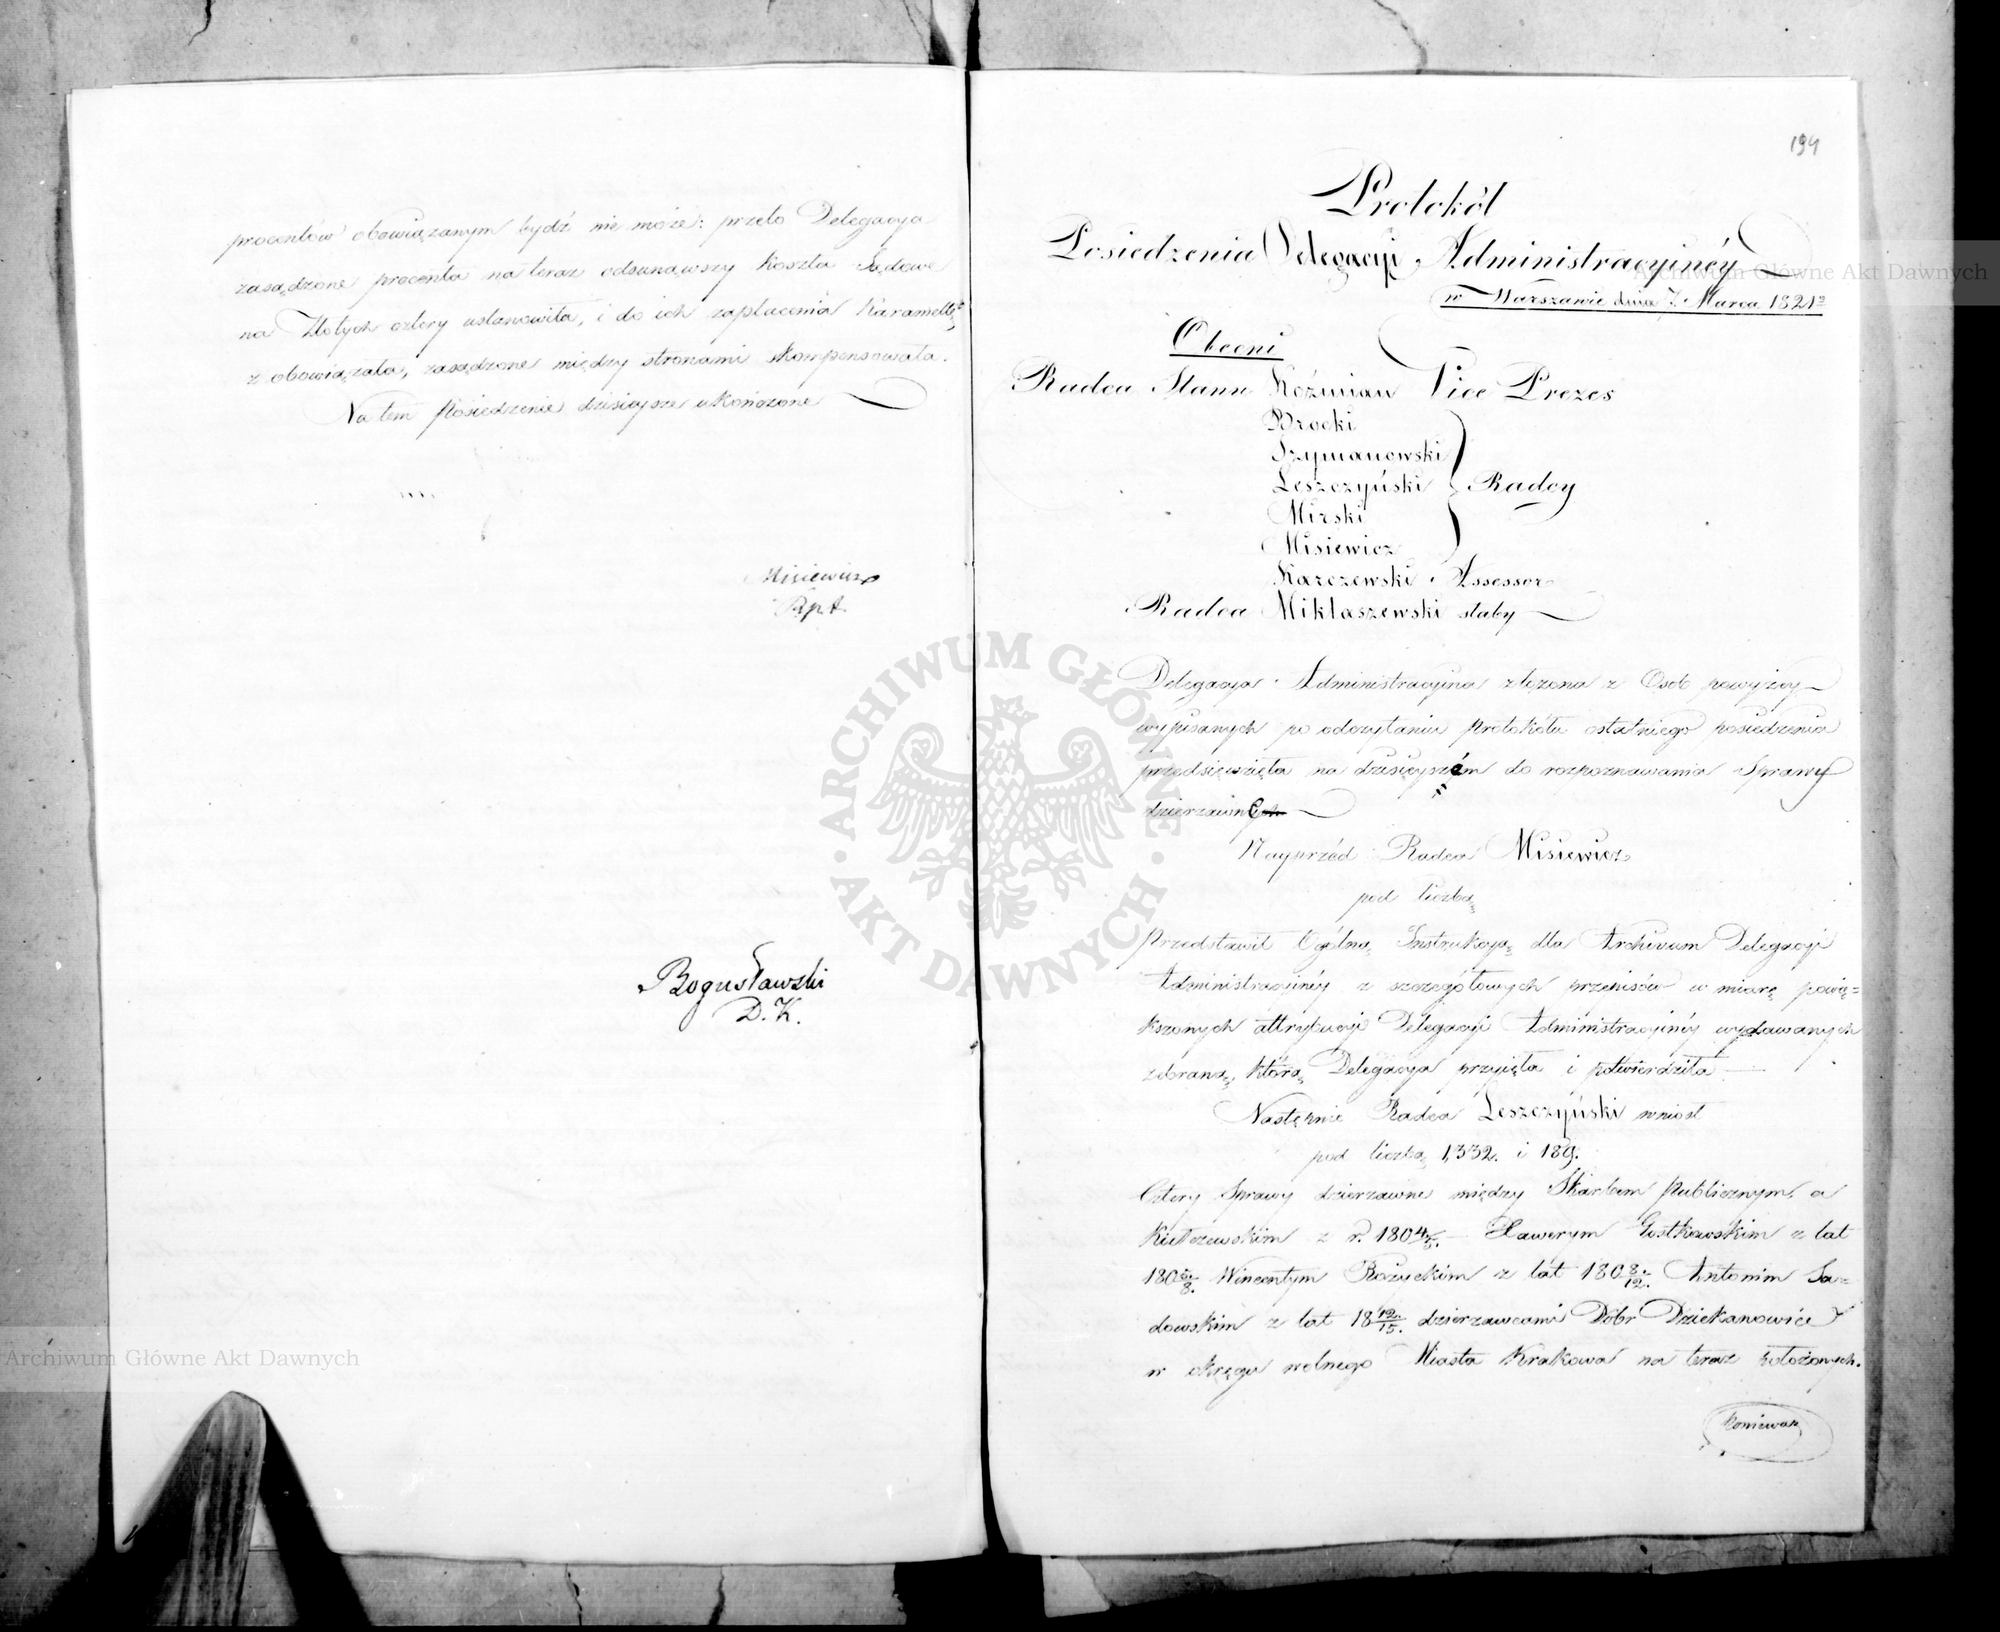 procentów obowiązanym bydź nie może: przeto Delegacya
zasądzone procenta na teraz odsunąwszy koszta Sądowe
na Złotych cztery ustanowiła, i do ich zapłacenia
obowiązała, zasądzone między stronami skompensowała.
Na tem Posiedzenie dzisieysze ukończone
Misiewicz
Rpt.
Bogusławski
D. K.
194
Protokół
Posiedzenia Delegacyi Administracyinéy
w Warszawie dnia 7. Marca 1821
Obecni
Radca Stanu Koźmian Vice Prezes
Brocki
Szymanowski
Leszczyński Radcy
Mirski
Misiewicz
Karczewski Assessor
Radca Mikłaszewski słaby
Delegacya Administracyina złożona z Osób powyżey
wypisanych po odczytaniu protokółu ostatniego posiedzenia
przedsięwzięła na dzisieyszém do rozpoznawania Sprawy
Nayprzód Radca Misiewicz
pod liczbą
Przedstawił Ogólną Instrukcyą dla Archivum Delegacyi
Administracyinéy z szczegółowych przepisów w miarę powię=
kszonych attrybucyi Delegacyi Administracyinéy wydawanych
zebraną, którą Delegacya przyięła i potwierdziła
Następnie Radca Leszczyński wniósł
pod liczbą 1,332. i 189.
Cztery Sprawy dzierzawne między Skarbem Publicznym, a
z r. 1804/5. Xawerym Gostkowskim z lat
1805/8. Wincentym Rożyckim z lat 1808/12. Antonim Sa=
dowskim z lat 1812/15. dzierzawcami Dóbr Dziekanowice
w okręgu wolnego Miasta Krakowa na teraz położonych.
Archiwum Główne Akt Dawnych
Archiwum Główne Akt Dawnych
ARCHIWUM GŁÓWNE
AKT DAWNYCH